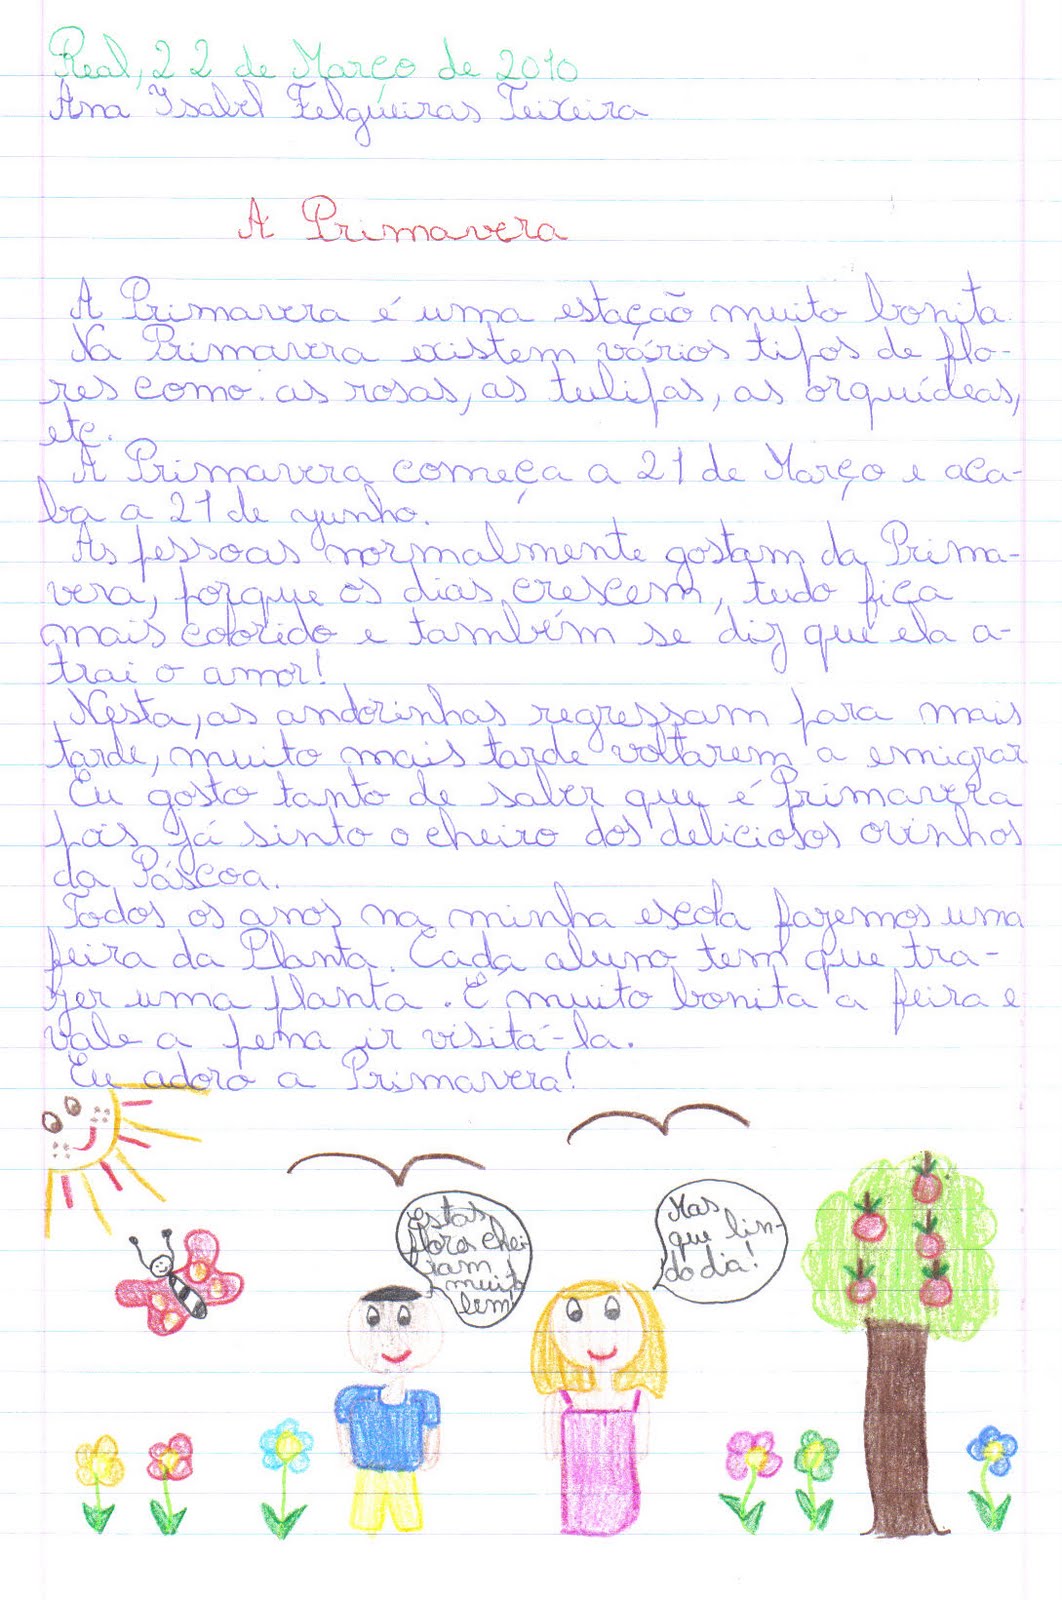 Real, 22 de Março de 2010
Ana Isabel Felgueiras Teixeira
A Primavera
A Primavera é uma estação muito bonita.
Na Primavera existem vários tipos de flo-
res como: as rosas, as tulipas, as orquídeas,
etc.
A Primavera começa a 21 de Março e aca-
ba a 21 de yunho.
As pessoas normalmente gostam da Prima-
vera, porque os dias crescem, tudo fica
mais colorido e também se diz que ela a-
trai o amor!
Nesta, as andorinhas regressam para mais
tarde, muito mais tarde voltarem a emigrar
Eu gosto tanto de saber que é Primavera
pois já sinto o cheiro dos deliciosos ovinhos
da Páscoa.
Todos os anos na minha escola fazemos uma
feira da Planta. Cada aluno tem que tra-
zer uma planta. É muito bonita a feira e
vale a pena ir visitá-la.
Eu adoro a Primavera!
estas
flores chei-
ram
muito
bem!
Mas
que lin-
do dia!